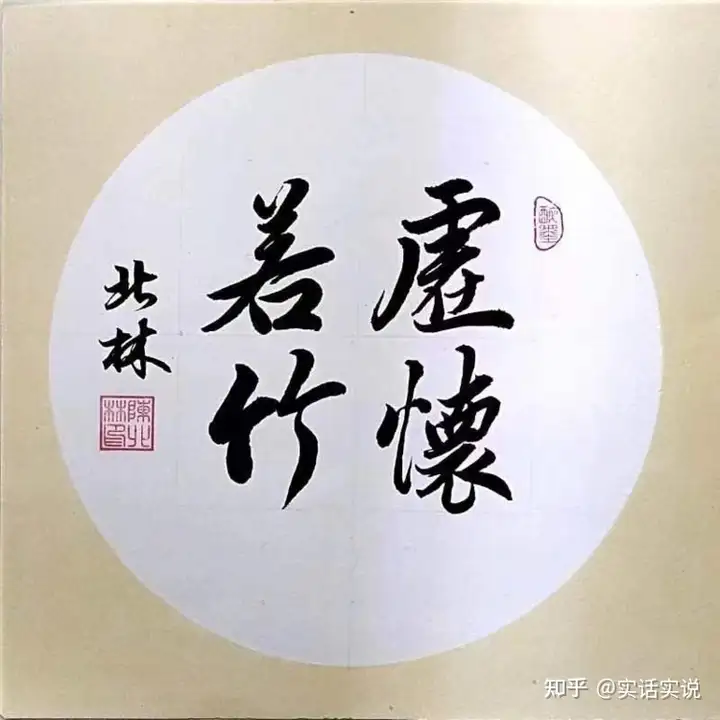 虚懷
若竹
北林
陳北林印
知乎 @实话实说